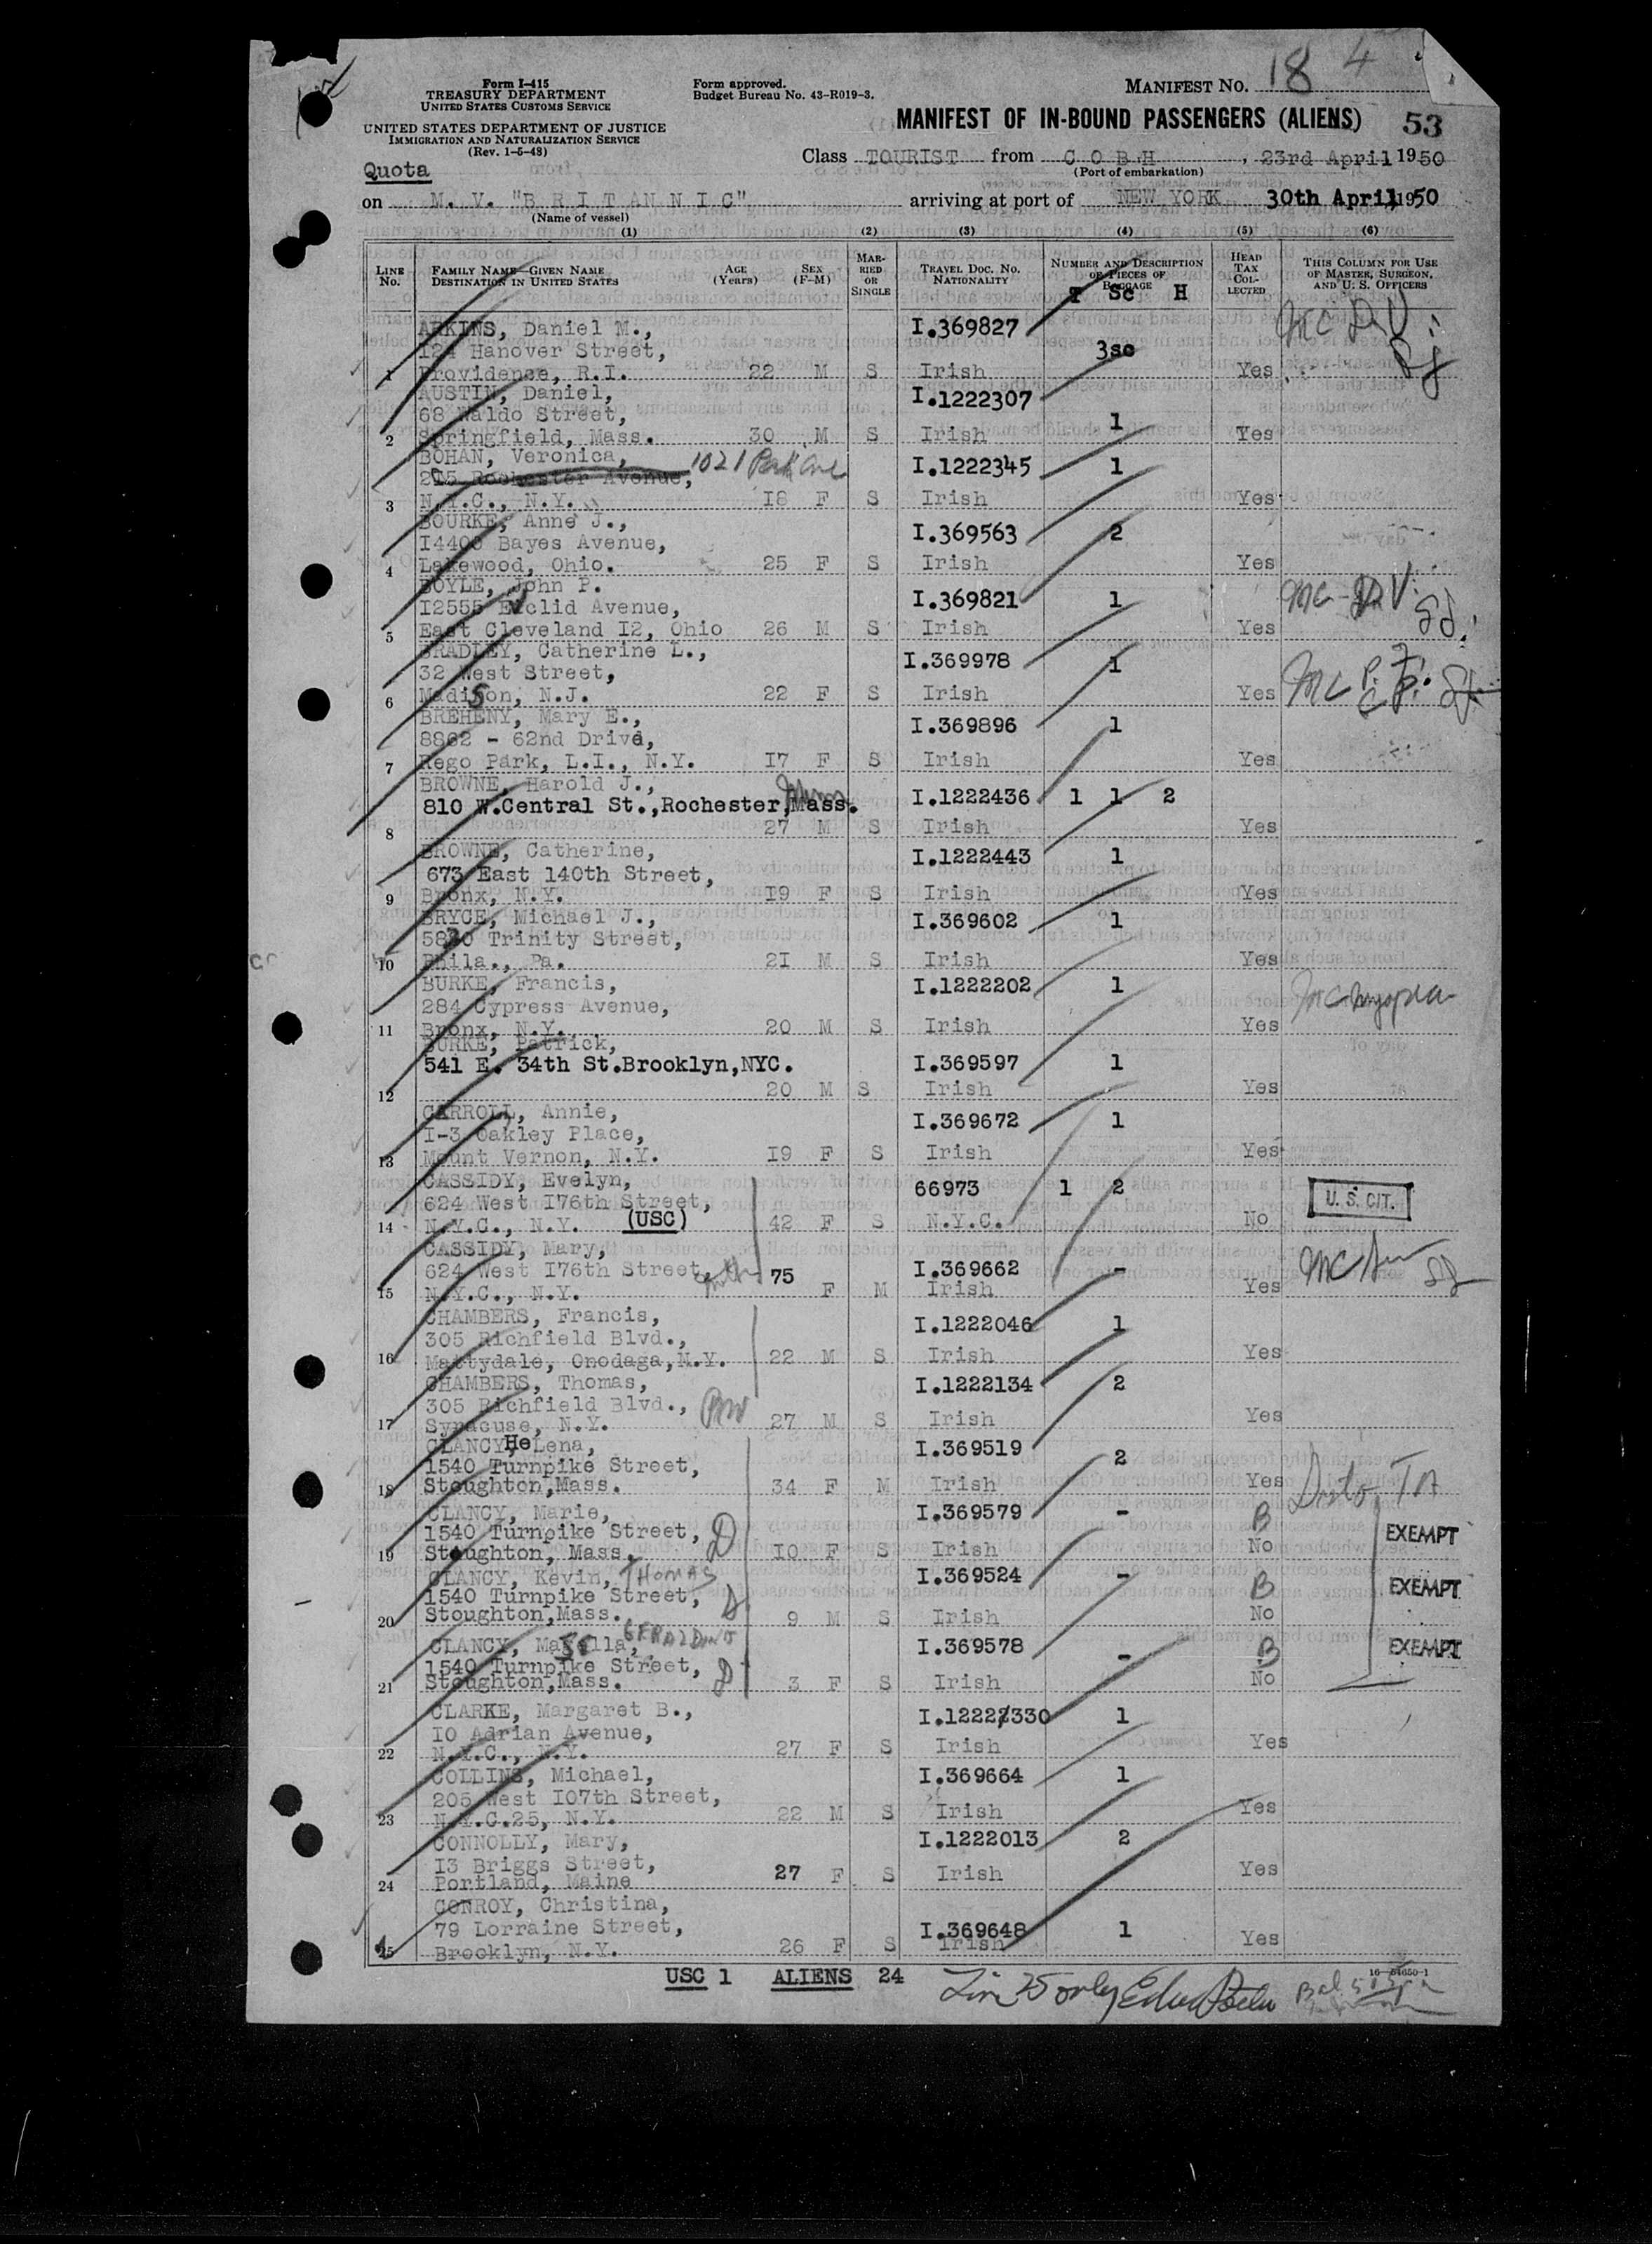 Form I-415
TREASURY DEPARTMENT
UNITED STATES CUSTOMS SERVICE
UNITED STATES DEPARTMENT OF JUSTICE
IMMIGRATION AND NATURALIZATION SERVICE
(Rev. 1-5-48)
Form approved.
Budget Bureau No. 43-R019-3.
MANIFEST No. 18 4
MANIFEST OF IN-BOUND PASSENGERS (ALIENS) 53
Quota
Class TOURIST from C O B H, 23rd April 1950
(Port of embarkation)
on M. V. "B R I T A N N I C" arriving at port of NEW YORK 30th April, 1950
(Name of vessel)
(1) (2) (3) (4) (5) (6)
LINE No.
FAMILY NAME—GIVEN NAME
DESTINATION IN UNITED STATES
AGE (Years)
SEX (F-M)
MARRIED OR SINGLE
TRAVEL DOC. NO.
NATIONALITY
NUMBER AND DESCRIPTION OF PIECES OF BAGGAGE
T Sc H
HEAD TAX COLLECTED
THIS COLUMN FOR USE OF MASTER, SURGEON, AND U. S. OFFICERS
ARKINS, Daniel M., I.369827
124 Hanover Street, 3sc
1 Providence, R.I. 22 M S Irish Yes
AUSTIN, Daniel, I.1222307
68 Waldo Street, 1
2 Springfield, Mass. 30 M S Irish Yes
BOHAN, Veronica, 1021 Park Ave I.1222345 1
215 Rochester Avenue,
3 N.Y.C., N.Y. I8 F S Irish Yes
BOURKE, Anne J., I.369563 2
I4400 Bayes Avenue,
4 Lakewood, Ohio. 25 F S Irish Yes
BOYLE, John P. I.369821 1
I2555 Euclid Avenue,
5 East Cleveland I2, Ohio 26 M S Irish Yes
BRADLEY, Catherine L., I.369978 1
32 West Street,
6 Madison, N.J. 22 F S Irish Yes
BREHENY, Mary E., I.369896 1
8862 - 62nd Drive,
7 Rego Park, L.I., N.Y. I7 F S Irish Yes
BROWNE, Harold J., I.1222436 1 1 2
810 W.Central St.,Rochester,Mass. Minn
8 27 M S Irish Yes
BROWNE, Catherine, I.1222443 1
673 East 140th Street,
9 Bronx, N.Y. I9 F S Irish Yes
BRYCE, Michael J., I.369602 1
5830 Trinity Street,
10 Phila., Pa. 2I M S Irish Yes
BURKE, Francis, I.1222202 1
284 Cypress Avenue, MC myopia
11 Bronx, N.Y. 20 M S Irish Yes
BURKE, Patrick,
541 E. 34th St.Brooklyn,NYC. I.369597 1
12 20 M S Irish Yes
CARROLL, Annie, I.369672 1
I-3 Oakley Place,
13 Mount Vernon, N.Y. I9 F S Irish Yes
CASSIDY, Evelyn, 66973 1 2
624 West I76th Street, U. S. CIT.
14 N.Y.C., N.Y. (USC) 42 F S N.Y.C. No
CASSIDY, Mary,
624 West I76th Street, 75 I.369662 -
15 N.Y.C., N.Y. F M Irish Yes
CHAMBERS, Francis, I.1222046 1
305 Richfield Blvd.,
16 Mattydale, Onodaga,N.Y. 22 M S Irish Yes
CHAMBERS, Thomas, I.1222134 2
305 Richfield Blvd.,
17 Syracuse, N.Y. 27 M S Irish Yes
CLANCY, HeLena, I.369519 2
1540 Turnpike Street,
18 Stoughton,Mass. 34 F M Irish Yes
CLANCY, Marie, I.369579 - B
1540 Turnpike Street, D EXEMPT
19 Stoughton, Mass. I0 F S Irish No
CLANCY, Kevin, THOMAS I.369524 - B
1540 Turnpike Street, D EXEMPT
20 Stoughton,Mass. 9 M S Irish No
CLANCY, Majella, GERALDINE I.369578 - B
1540 Turnpike Street, D EXEMPT
21 Stoughton,Mass. 3 F S Irish No
CLARKE, Margaret B., I.12222330 1
I0 Adrian Avenue,
22 N.Y.C., N.Y. 27 F S Irish Yes
COLLINS, Michael, I.369664 1
205 West I07th Street,
23 N.Y.C.25, N.Y. 22 M S Irish Yes
CONNOLLY, Mary, I.1222013 2
I3 Briggs Street,
24 Portland, Maine 27 F S Irish Yes
CONROY, Christina,
79 Lorraine Street, I.369648 1
25 Brooklyn, N.Y. 26 F S Irish Yes
USC 1 ALIENS 24
16—54650-1